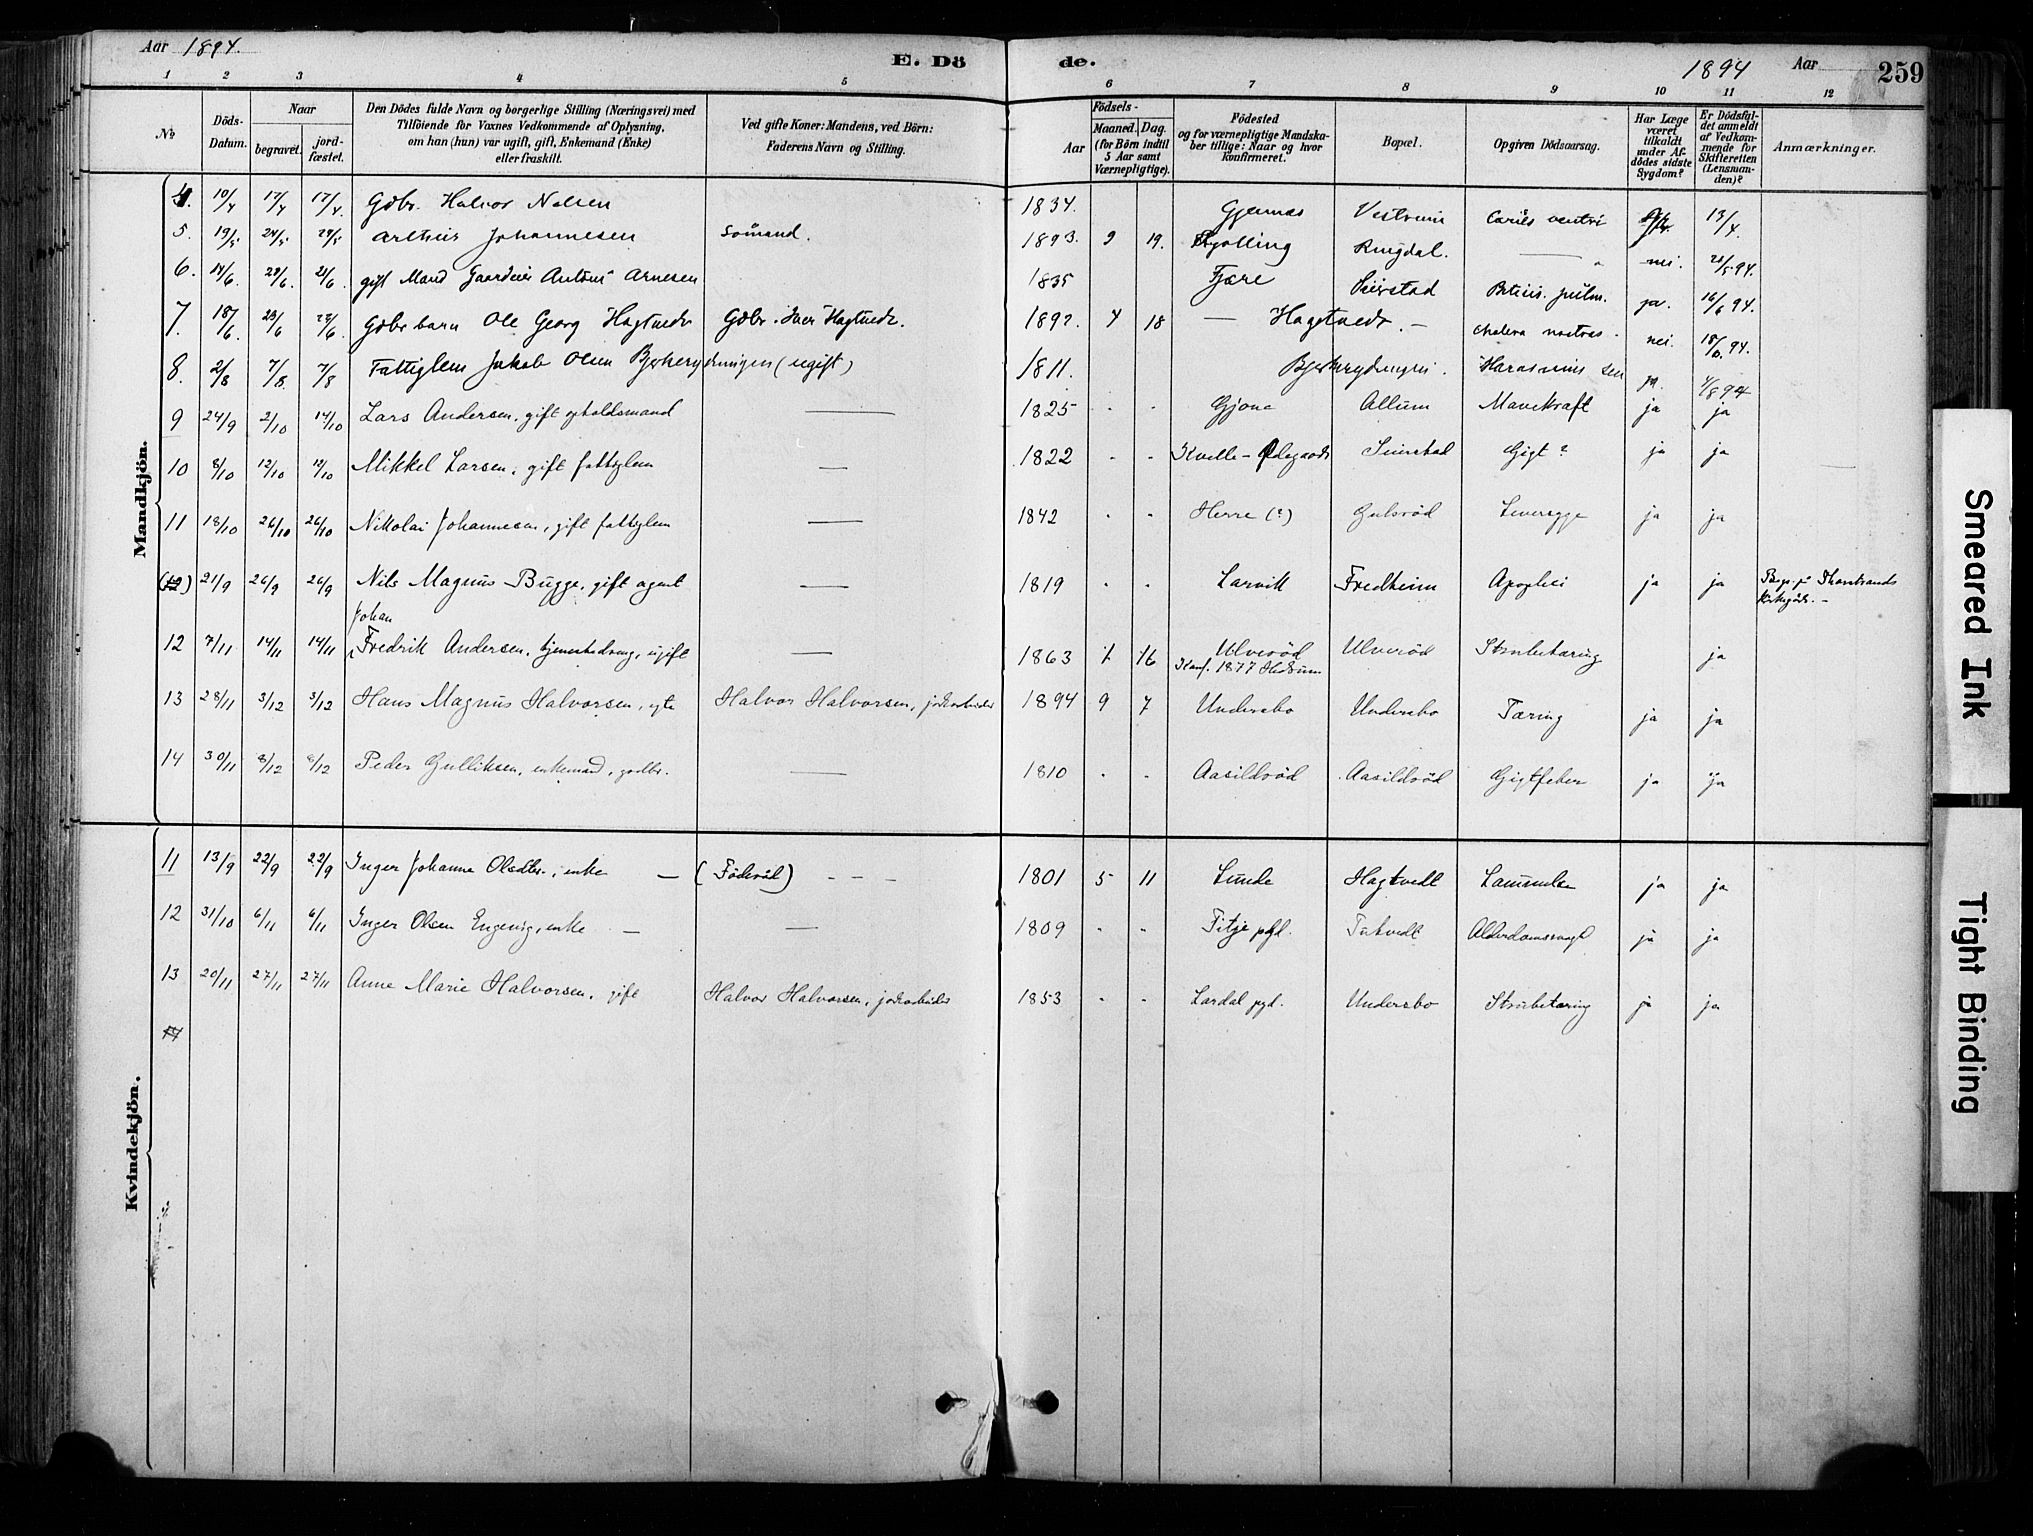 Aar 1894.
E. Dö
de.
1894 Aar
259
1 2 3 4 5 6 7 8 9 10 11 12
No
Döds-Datum.
Naar
begravet.
jord-fæstet.
Den Dödes fulde Navn og borgerlige Stilling (Næringsvei) med
Tilföiende for Voxnes Vedkommende af Oplysning,
om han (hun) var ugift, gift, Enkemand (Enke)
eller fraskilt.
Ved gifte Koner: Mandens, ved Börn:
Faderens Navn og Stilling.
Födsels-
Aar
Maaned. Dag.
(for Börn indtil
5 Aar samt
Værnepligtige).
Födested
og for værnepligtige Mandska-
ber tillige: Naar og hvor
konfirmeret.
Bopæl.
Opgiven Dödsaarsag.
Har Læge
været
tilkaldt
under Af-
dödes sidste
Sygdom?
Er Dödsfal-
det anmeldt
af Vedkom-
mende for
Skifteretten
(Lensman-
den)?
Anmærkninger.
Mandkjön.
4. 10/4 17/4 17/4. Gdbr. Halvor Nelsen 1834. Gjernæs 13/4.
5. 19/5 24/5 24/5 Arthur Johannesen Sömand. 1893. 9 19. Ringdal. nei. 21/5 94.
6. 14/6 21/6. gift Mand Gaardeier Antons Arnesen 1835 Fjære Seierstad ja. 16/6 94.
7. 18/6. 23/6 23/6. Gdbr barn Ole Georg Hagtvedt Gdbr. Iver Hagtvedt. 1892. 4 18 — Hagtvedt. — cholera nostras. nei. 94.
8. 2/8 7/8. 7/8 Fattiglem Jakob Olsen Bjerkerydningen (ugift) 1811. Bjerkrydningen. ja. 4/8 94
9 24/9 2/10 14/10 Lars Andersen, gift opholdsmand — 1825 - - Gjone Allum Mavekræft ja ja
10 8/10 12/10 12/10 Mikkel Larsen, gift fattiglem — 1822 - - Kvelle-Ødegaard Seierstad Gigt? ja ja
11 18/10 26/10 26/10 Nikolai Johannesen, gift fattiglem — 1842 - - Herre (?) Gulsröd ja ja
(12) 21/9 26/9 26/9 Nils Magnus Bugge, gift agent — 1819 - - Larvik Fredheim Apoplexi ja ja Begr. på Thanstrands Kirkegård. —
Johan
12 7/11 14/11 14/11 Fredrik Andersen, tjenestedreng, ugift — 1863 1 16 Ulveröd Ulveröd Strubetæring ja
Konf. 1877 Hedrum
13 28/11 3/12 3/12 Hans Magnus Halvorsen, egte Halvor Halvorsen, jordarbeider 1894 9 7 Undersbo Undersbo Tæring ja ja
14 30/11 8/12 8/12 Peder Gulliksen, enkemand, gardbr. — 1810 - - Aasildröd Aasildröd Gigtfeber ja ja
Kvindekjön.
11 13/9 22/9 22/9 Inger Johanne Olsdtr., enke — (Föderåd) - - - 1801 5 11 Lunde Hagtvedt Lammelse ja ja
12 31/10 6/11 6/11 Inger Olsen Engevig, enke — — 1809 - - Titje pgd. Tutvedt Alderdomssvagh ja ja
13 20/11 27/11 27/11 Anne Marie Halvorsen, gift Halvor Halvorsen, jordarbeider 1853 - - Lardal pgd. Undersbo Strubetæring ja ja
14
Smeared Ink
Tight Binding